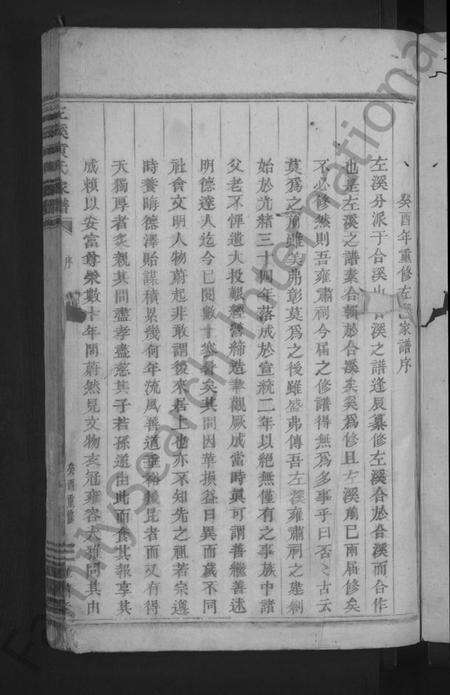 癸酉年重修左溪家譜序
左溪分派于合溪也合溪之譜逢辰纂修左溪合於合溪而合作
也是左溪之譜素合輯於合溪矣奚為修且左溪前已兩屆修矣
不必修然則吾雍肅祠今屆之修譜得無為多事乎曰否否古云
莫為之前雖美弗彰莫為之後雖盛弗傳吾左溪雍肅祠之建創
始於光緒三十四年落成於宣統二年以絕無僅有之事族中諸
父老不憚遺大投艱慘澹締造聿觀厥成當時真可謂善繼善述
明德達人迄今已閱數十寒暑矣其間因革損益日異而歲不同
社會文明人物蔚起非敢謂後來居上也亦不知先之祖若宗遵
時養晦德澤貽謀積累幾何年流風善道垂裕後昆者而又有得
天獨厚者炙親其間盡孝盡慈其子若孫道由此而食其報享其
成賴以安富尊榮數十年間蔚然見文物衣冠雍容大雅問其由
左溪黃氏家譜
序
癸酉重修